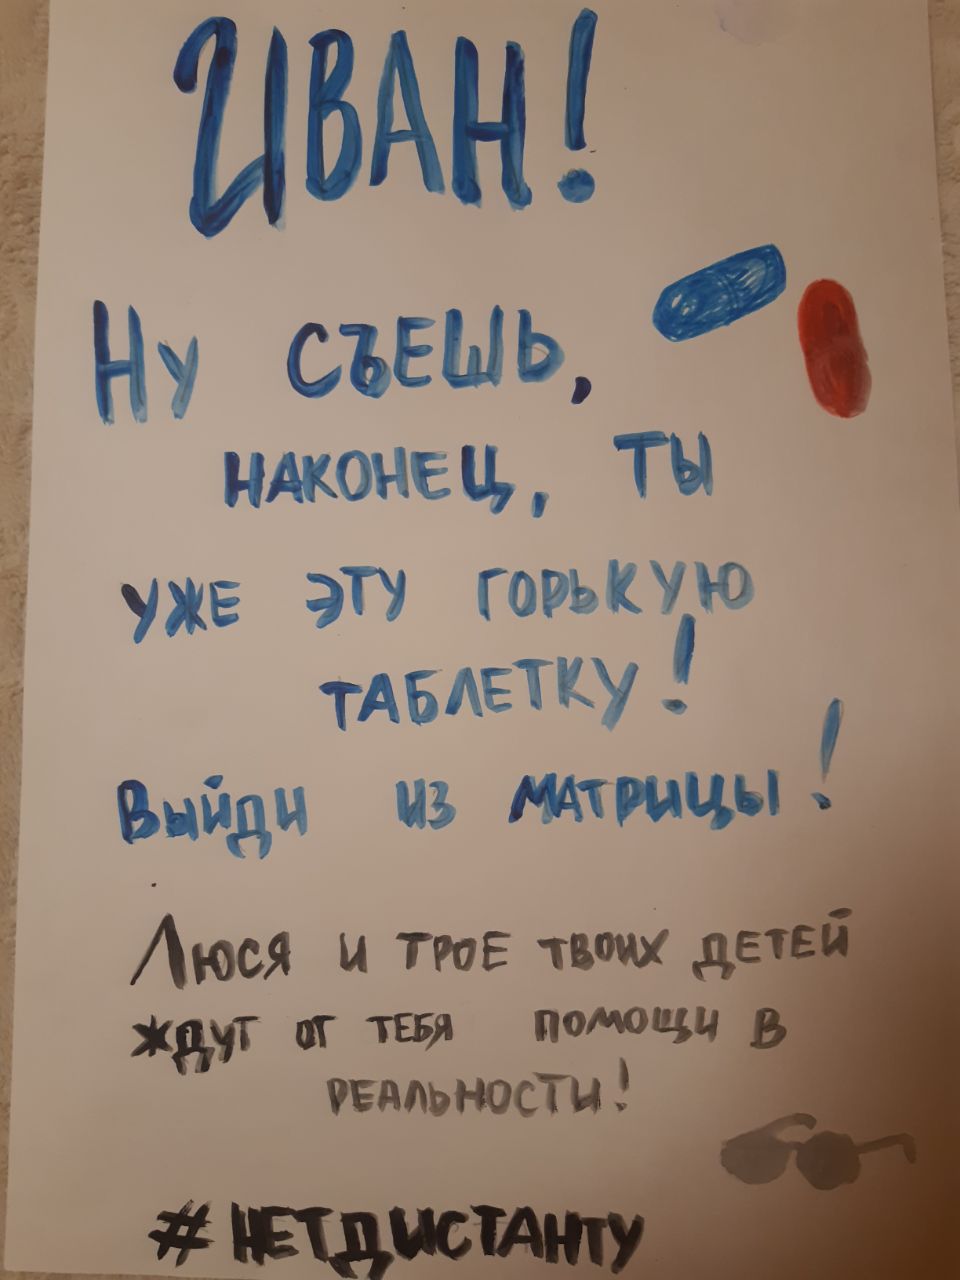 ИВАН!
Ну СЪЕШЬ,
НАКОНЕЦ, ТЫ
УЖЕ ЭТУ ГОРЬКУЮ
ТАБЛЕТКУ!
Выйди из МАТРИЦЫ!
Люся и ТРОЕ ТВОИХ ДЕТЕЙ
ЖДУТ ОТ ТЕБЯ ПОМОЩИ В
РЕАЛЬНОСТИ!
#НЕТДИСТАНТУ